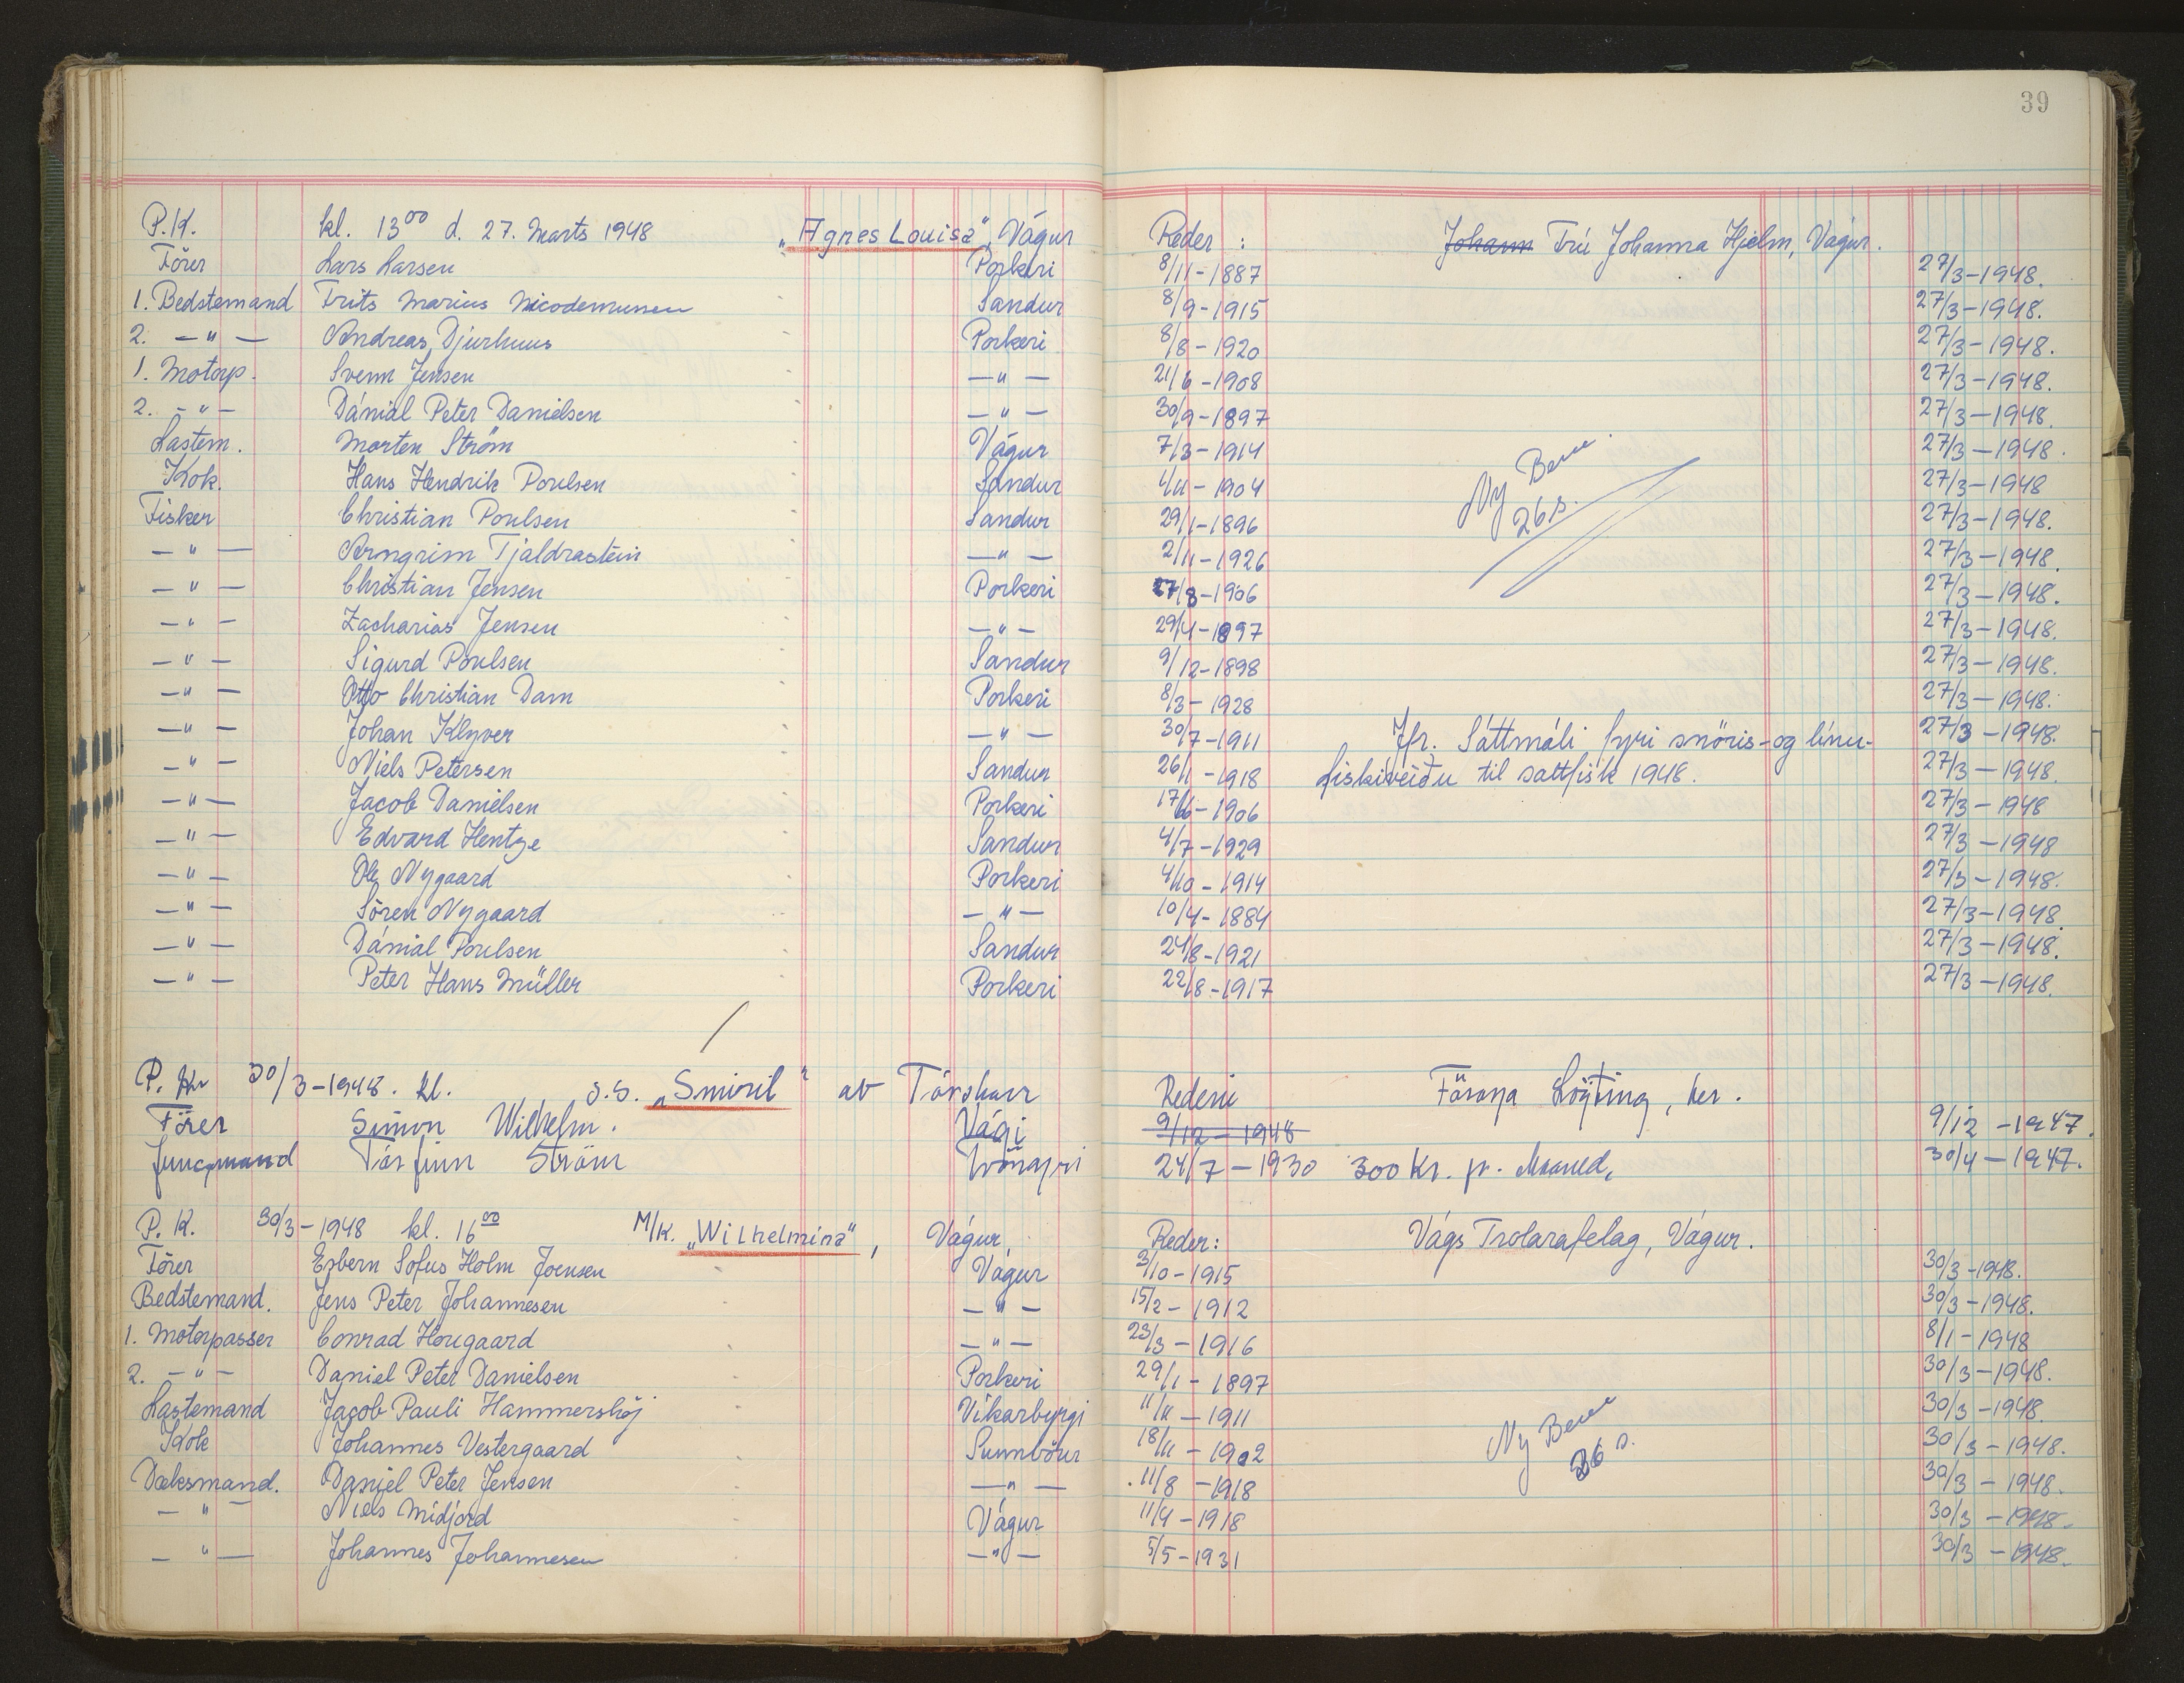 39
P.K. kl. 13⁰⁰ d. 27. Marts 1948 „Agnes Louisa", Vágur Reder : Johann Frú Johanna Hjelm, Vágur.
Förer Lars Larsen Porkeri 8/11-1887 27/3-1948.
1. Bedstemand Frits Marius Nicodemussen Sandur 8/9-1915 27/3-1948.
2. — " — Andreas Djurhuus Porkeri 8/8-1920 27/3-1948.
1. Motorp. Svenn Jensen — " — 21/6-1908 27/3-1948.
2. - " - Dánial Peter Danielsen — " — 30/9-1897 27/3-1948.
Lastem. Morten Ström Vágur 7/3-1914 27/3-1948.
Kok. Hans Hendrik Poulsen Sandur 1/11-1904 27/3-1948
Ny Bem.
26 s.
Fisker Christian Poulsen Sandur 29/1-1896 27/3-1948.
— " — Arngrim Tjaldrastein — " — 2/11-1926 27/3-1948.
— " — Christian Jensen Porkeri 27/8-1906 27/3-1948.
— " — Zacharias Jensen — " — 29/4-1897 27/3-1948.
— " — Sigurd Poulsen Sandur 9/12-1898 27/3-1948.
— " — Otto Christian Dam Porkeri 8/3-1928 27/3-1948.
— " — Johan Klyver — " — 30/7-1911 Jfr. Sáttmáli fyri snöris- og línu- 27/3-1948.
— " — Niels Petersen Sandur 26/1-1918 fiskiveiðu til saltfisk 1948. 27/3-1948.
— " — Jacob Danielsen Porkeri 17/6-1906 27/3-1948
— " — Edvard Hentze Sandur 4/7-1929 27/3-1948
— " — Ole Nygaard Porkeri 4/10-1914 27/3-1948.
— " — Sören Nygaard — " — 10/4-1884 27/3-1948
— " — Dánial Poulsen Sandur 24/8-1921 27/3-1948.
— " — Peter Hans Müller Porkeri 22/8-1917 27/3-1948.
P. Kr 30/3-1948. kl. S.S. „Smiril" av Tórshavn Rederi Föroya Lögting, her.
Förer Simon Wilhelm. Vági 9/12-1948 9/12-1947.
Jungmand Tórfinn Ström 24/7-1930 300 Kr. pr. Maaned, 30/4-1947.
P. K. 30/3-1948 kl. 16⁰⁰ M/K. „Wilhelmina", Vágur, Reder: Vágs Trolarafelag, Vágur.
Förer Esbern Sofus Holm Joensen Vágur 3/10-1915 30/3-1948.
Bedstemand. Jens Peter Johannesen — " — 15/2-1912 30/3-1948.
1. Motorpasser Conrad Hougaard — " — 23/3-1916 8/1-1948
2. - " - Daniel Peter Danielsen Porkeri 29/1-1897 30/3-1948.
Lastemand Jacob Pauli Hammershöj Vikarbyrgi 11/11-1911 30/3-1948.
Kok Johannes Vestergaard Sunnböur 18/11-1902 30/3-1948.
Ny Bem
26 s.
Dæksmand. Daniel Peter Jensen — " — 11/8-1918 30/3-1948.
— " — Niels Midjord Vágur 11/4-1918 30/3-1948.
— " — Johannes Johannesen — " — 5/5-1931 30/3-1948.